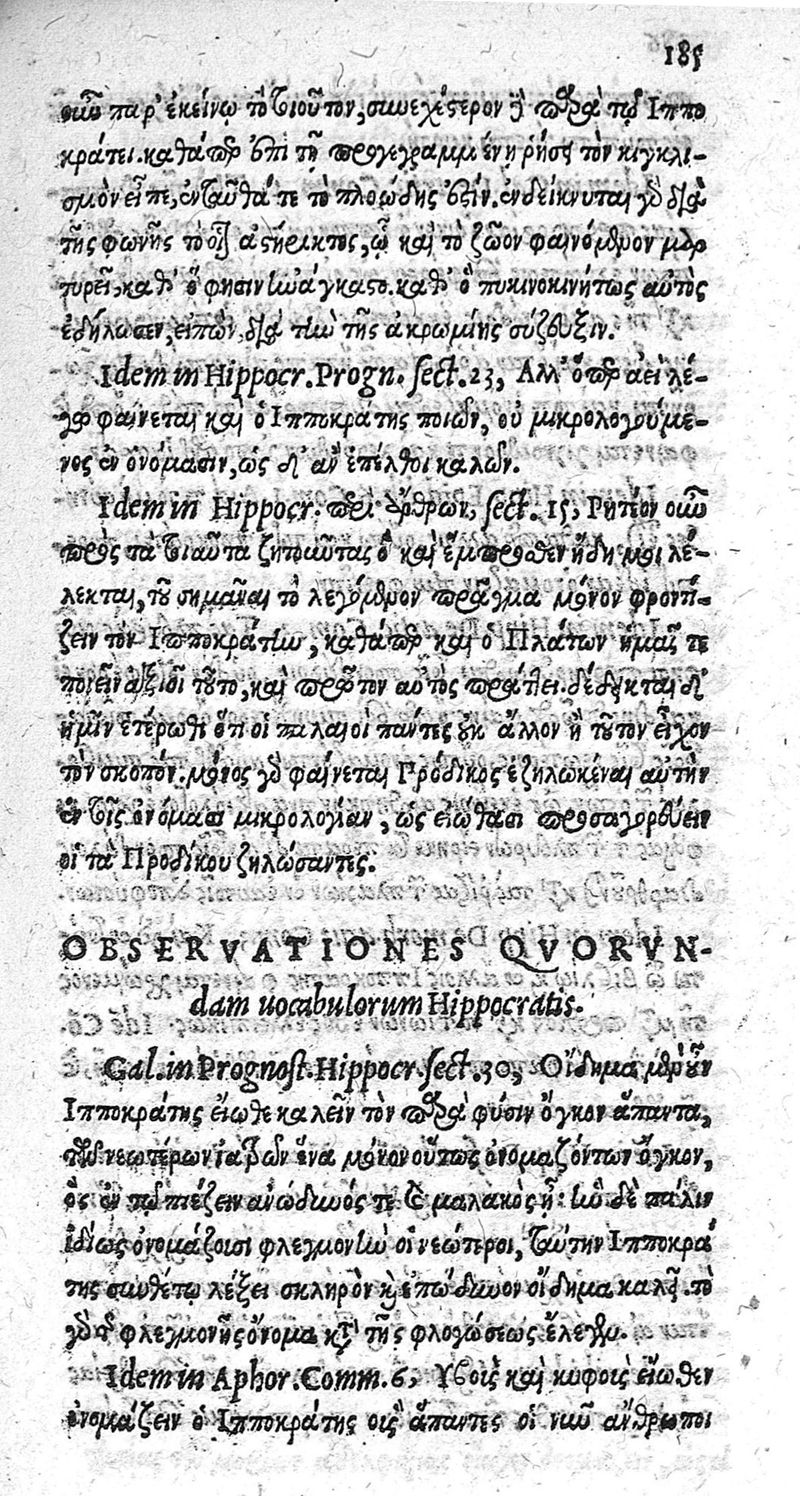 185
οιῶ παρ' ἐκείνῳ τὸ τοιοῦτον, συνεχέστερον ἢ παρὰ τῷ Ἱππο
κράτει. καθάπερ ἐπὶ τῇ προγεγραμμένῃ ῥήσει τὸν κιγκλι-
σμὸν εἶπε, ἐνταῦθά τε τὸ πλοώδης ἐστίν. ἐνδείκνυται γὰρ διὰ
τῆς φωνῆς τὸ ἀστήρικτος, ᾧ καὶ τὸ ζῶον φαινόμενον μαρ
τυρεῖ, καθ' ὅ φησιν καθ' ὃ πυκινοκινήτως αὐτὸς
ἐδήλωσεν, εἰπών, διὰ τὴν τῆς ἀκρωμίης σύζευξιν.
Idem in Hippocr. Progn. sect. 23, Ἀλλ' ὅπερ ἀεὶ λέ-
γω φαίνεται καὶ ὁ Ἱπποκράτης ποιῶν, οὐ μικρολογούμε-
νος ἐν ὀνόμασιν, ὡς δ' ἂν ἐπέλθοι καλῶν.
Idem in Hippocr. περὶ ἄρθρων, sect. 15, Ῥητέον οὖν
πρὸς τὰ τοιαῦτα ζητοῦντας ὃ καὶ ἔμπροσθεν ἤδη μοι λέ-
λεκται, τοῦ σημᾶναι τὸ λεγόμενον πρᾶγμα μόνον φροντί-
ζειν τὸν Ἱπποκράτην, καθάπερ καὶ ὁ Πλάτων ἡμᾶς τε
ποιεῖν ἀξιοῖ τοῦτο, καὶ πρῶτον αὐτὸς πράττει. δέδεικται δ'
ἡμῖν ἑτέρωθι ὅτι οἱ παλαιοὶ πάντες οὐκ ἄλλον ἢ τοῦτον εἶχον
τὸν σκοπόν. μόνος γὰρ φαίνεται Πρόδικος ἐζηλωκέναι αὐτὴν
ἐν τοῖς ὀνόμασι μικρολογίαν, ὡς εἰώθασι προσαγορεύειν
οἱ τὰ Προδίκου ζηλώσαντες.
OBSERVATIONES QVORVN-
dam uocabulorum Hippocratis.
Gal. in Prognost. Hippocr. sect. 30, Οἴδημα μὲν οὖν
Ἱπποκράτης εἴωθε καλεῖν τὸν παρὰ φύσιν ὄγκον ἅπαντα,
τῶν νεωτέρων ἰατρῶν ἕνα μόνον οὕτως ὀνομαζόντων ὄγκον,
ὃς ἐν τῷ πιέζειν ἀνώδυνός τε καὶ μαλακὸς ᾖ: ἣν δὲ πάλιν
ἰδίως ὀνομάζουσι φλεγμονὴν οἱ νεώτεροι, ταύτην Ἱπποκρά
της συνθέτῳ λέξει σκληρὸν καὶ ἐπώδυνον οἴδημα καλεῖ. τὸ
γὰρ τῆς φλεγμονῆς ὄνομα κατὰ τῆς φλογώσεως ἔλεγεν.
Idem in Aphor. Comm. 6, Ὑβοῖς καὶ κυφοῖς εἴωθεν
ὀνομάζειν ὁ Ἱπποκράτης οὓς ἅπαντες οἱ νῦν ἄνθρωποι